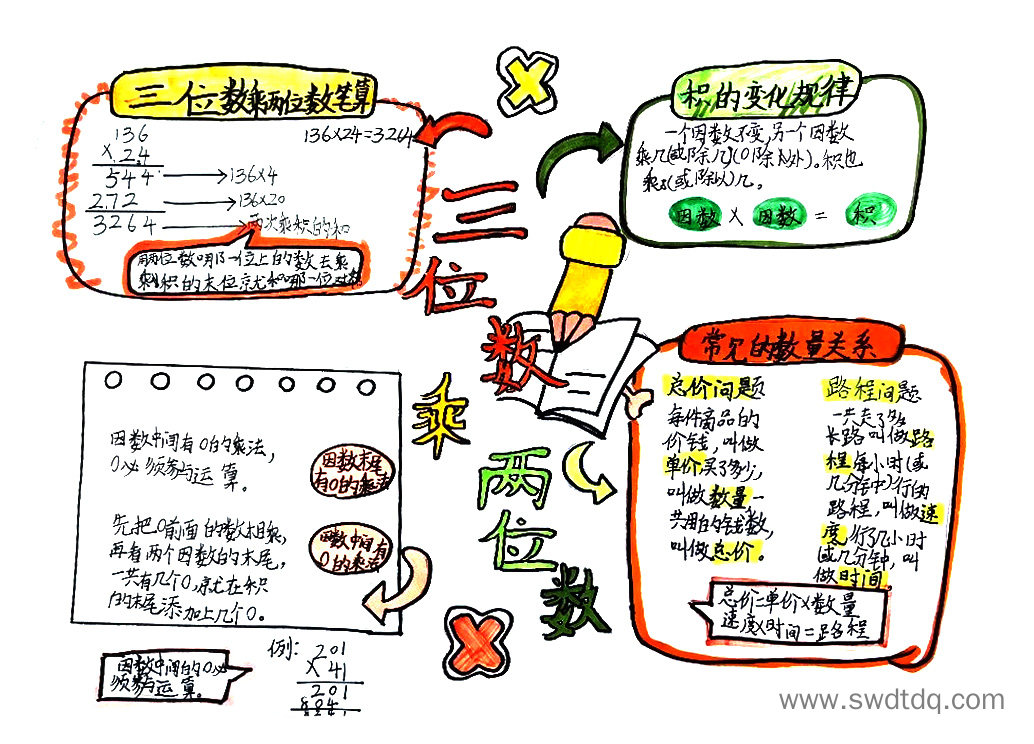 三位数乘两位数笔算
136×24=3264
136
×24
544→136×4
272→136×20
3264→两次乘积的和
用两位数哪一位上的数去乘
积的末位就和哪一位对
积的变化规律
一个因数不变,另一个因数
乘几(或除几)(0除外)。积也
乘(或除以)几。
因数×因数=积
三位数乘两位数
常见的数量关系
总价问题
每件商品的
价钱,叫做
单价买了多少,
叫做数量一
共用的钱数,
叫做总价。
路程问题
一共走了多
长路叫做路
程每小时(或
几分钟)行的
路程,叫做速
度,行了几小时
或几分钟,叫
做时间。
总价=单价×数量
速度×时间=路程
因数中间有0的乘法,
0必须参与运算。
因数末尾
有0的乘法
先把0前面的数相乘,
再看两个因数的末尾,
一共有几个0,就在积
的末尾添加上几个0。
因数中间有
0的乘法
因数中间的0必
须参与运算。
例:201
×41
201
804
www.swdtdq.com